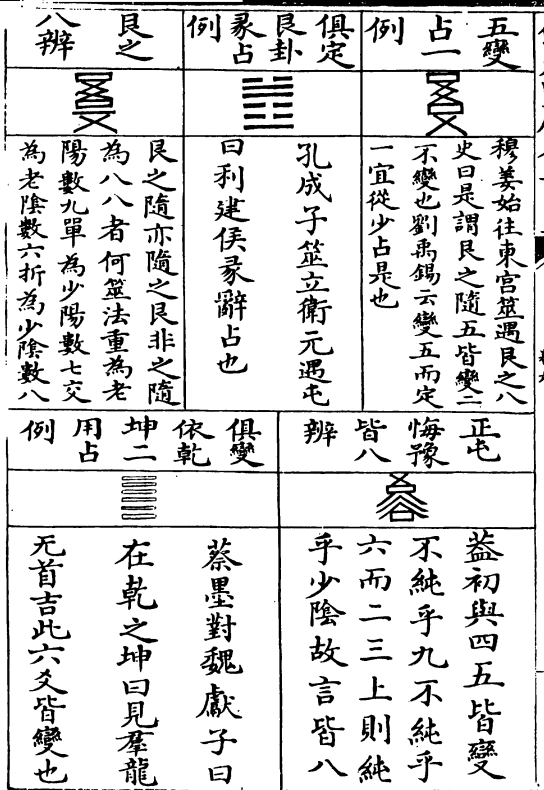 五變
占一
例
穆姜始往東宮筮遇艮之八
史曰是謂艮之隨五皆變二
不變也劉禹錫云變五而定
一宜從少占是也
俱定
艮卦
彖占
例
孔成子筮立衛元遇屯
曰利建侯彖辭占也
艮之
八辨
艮之隨亦隨之艮非之隨
為八八者何筮法重為老
陽數九單為少陽數七交
為老陰數六折為少陰數八
正屯
悔豫
皆八
辨
葢初與四五皆變
不純乎九不純乎
六而二三上則純
乎少陰故言皆八
俱變
依乾
坤二
用占
例
蔡墨對魏獻子曰
在乾之坤曰見羣龍
无首吉此六爻皆變也